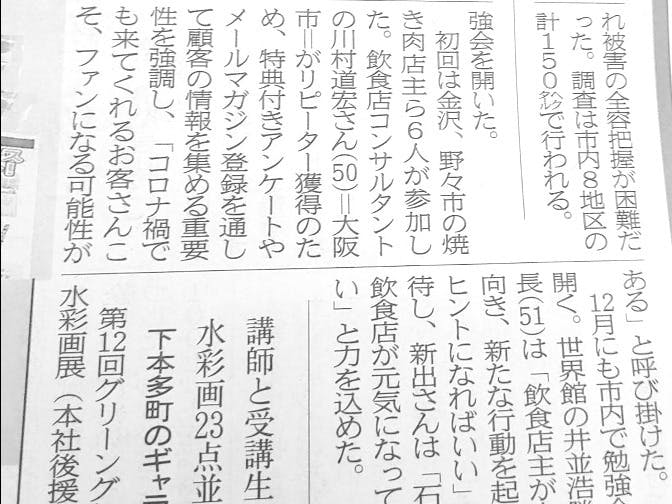 れ被害の全容把握が困難だ
った。調査は市内8地区の
計150㌶で行われる。
強会を開いた。
初回は金沢、野々市の焼
き肉店主ら6人が参加し
た。飲食店コンサルタント
の川村道宏さん(50)=大阪
市=がリピーター獲得のた
め、特典付きアンケートや
メールマガジン登録を通し
て顧客の情報を集める重要
性を強調し、「コロナ禍で
も来てくれるお客さんこ
そ、ファンになる可能性が
ある」と呼び掛けた。
12月にも市内で勉強
開く。世界館の井並浩
長(51)は「飲食店主が
向き、新たな行動を起
ヒントになればいい」
待し、新出さんは「石
飲食店が元気になって
い」と力を込めた。
講師と受講生
水彩画23点並
下本多町のギャ
第12回グリーング
水彩画展(本社後援